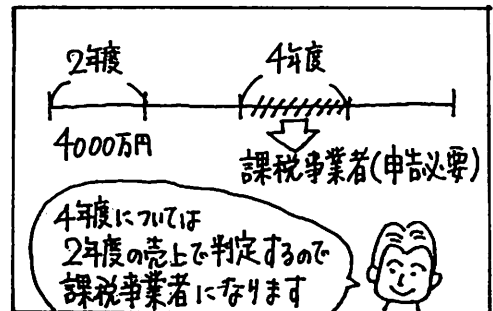 2年度
4年度
4000万円
課税事業者(申告必要)
4年度については
2年度の売上で判定するので
課税事業者になります